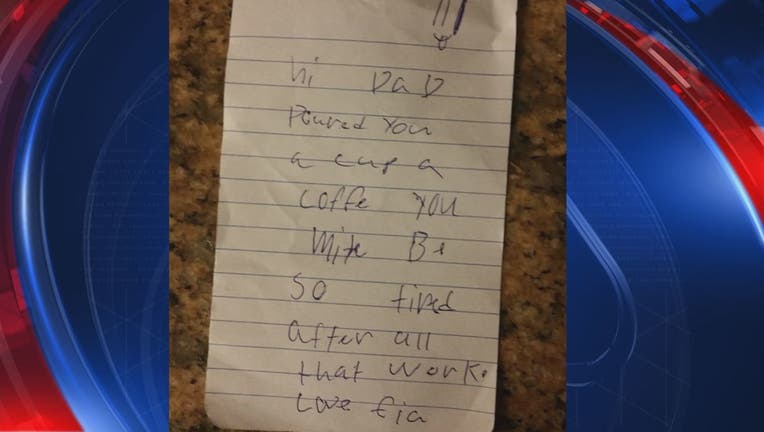 hi DaD
Poured You
a cup a
coffe you
mite Be
so tired
after all
that work.
Love tia